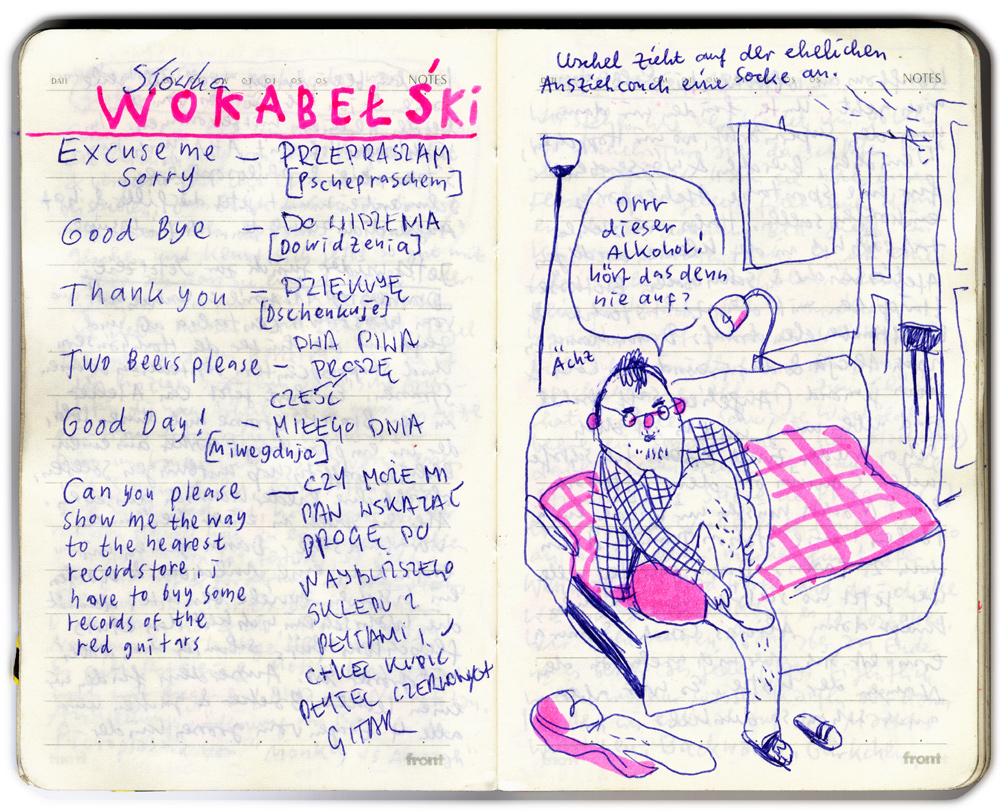 DATE
NOTES
Słówka
WOKABEŁŚKi
Excuse me — PRZEPRASZAM
Sorry [Pschepraschem]
Good Bye — DO WIDZENIA
[Dowidzenia]
Thank you — DZIĘKUJĘ
[Dschenkuje]
DWA PIWA
Two Beers please — PROSZĘ
CZEŚĆ
Good Day! — MIŁEGO DNIA
[Miwegdnja]
Can you please — CZY MOŻE MI
show me the way PAN WSKAZAĆ
to the nearest DROGĘ DO
recordstore, i NAJBLIŻSZEGO
have to buy some SKLEPU Z
records of the PŁYTAMI!
red guitars CHCĘ KUPIĆ
CZERWONYCH
GITAR
front
Uschel zieht auf der ehelichen
Ausziehcouch eine Socke an.
NOTES
Orrr
dieser
Alkohol!
hört das denn
nie auf?
Ächz
front